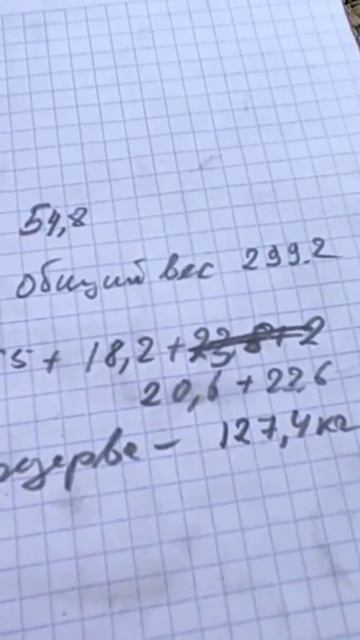 54,8
общий вес 299.2
5 + 18,2 +
20,6 + 22,6
127,4 кг